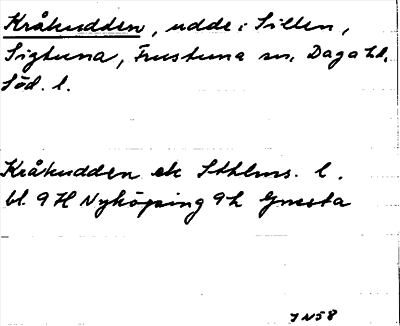 Kråkudden, udde i Sillen,
Sigtuna, Frustuna sn, Daga hd,
Söd. l.
Kråkudden ek Sthlms. l.
bl. 9H Nyköping 9h Gnesta
7 N58